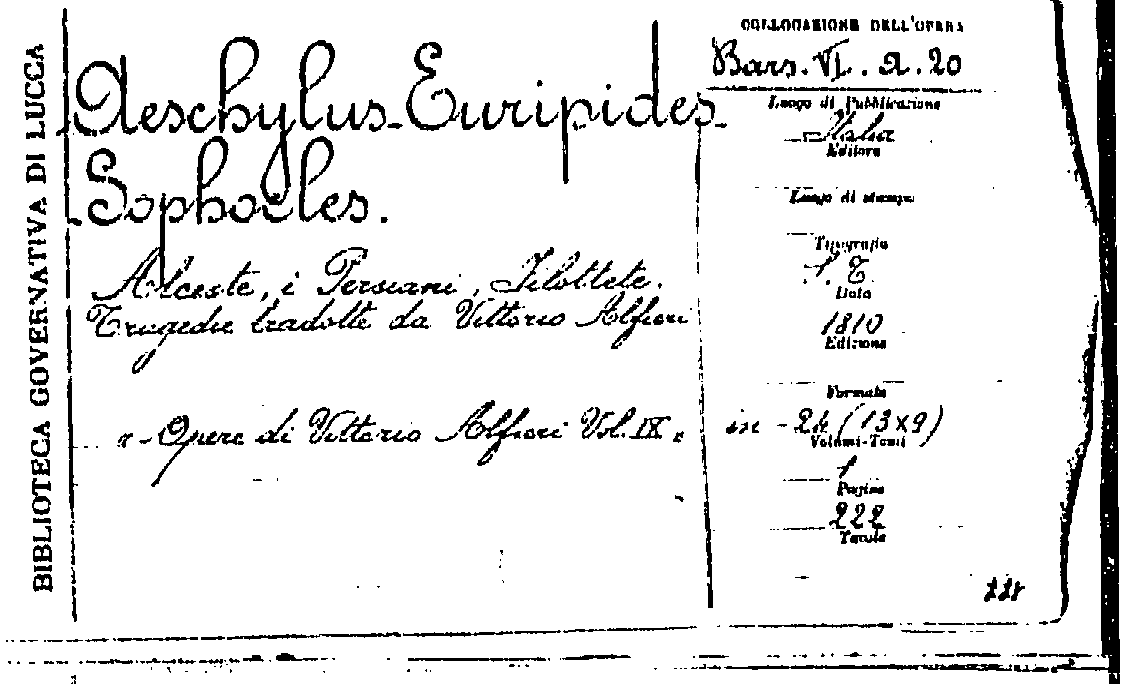 BIBLIOTECA GOVERNATIVA DI LUCCA
Aeschylus-Euripides
Sophocles.
Alceste, i Persiani, Filottete.
Tragedie tradotte da Vittorio Alfieri
"-Opere di Vittorio Alfieri Vol. IX"
COLLOCAZIONE DELL'OPERA
Bars. VI. a. 20
Luogo di Pubblicazione
Italia
Editore
Luogo di stampa
Tipografia
s. t.
Data
1810
Edizione
Formato
in - 24 (13x9)
Volumi-Tomi
1
Pagine
222
Tavole